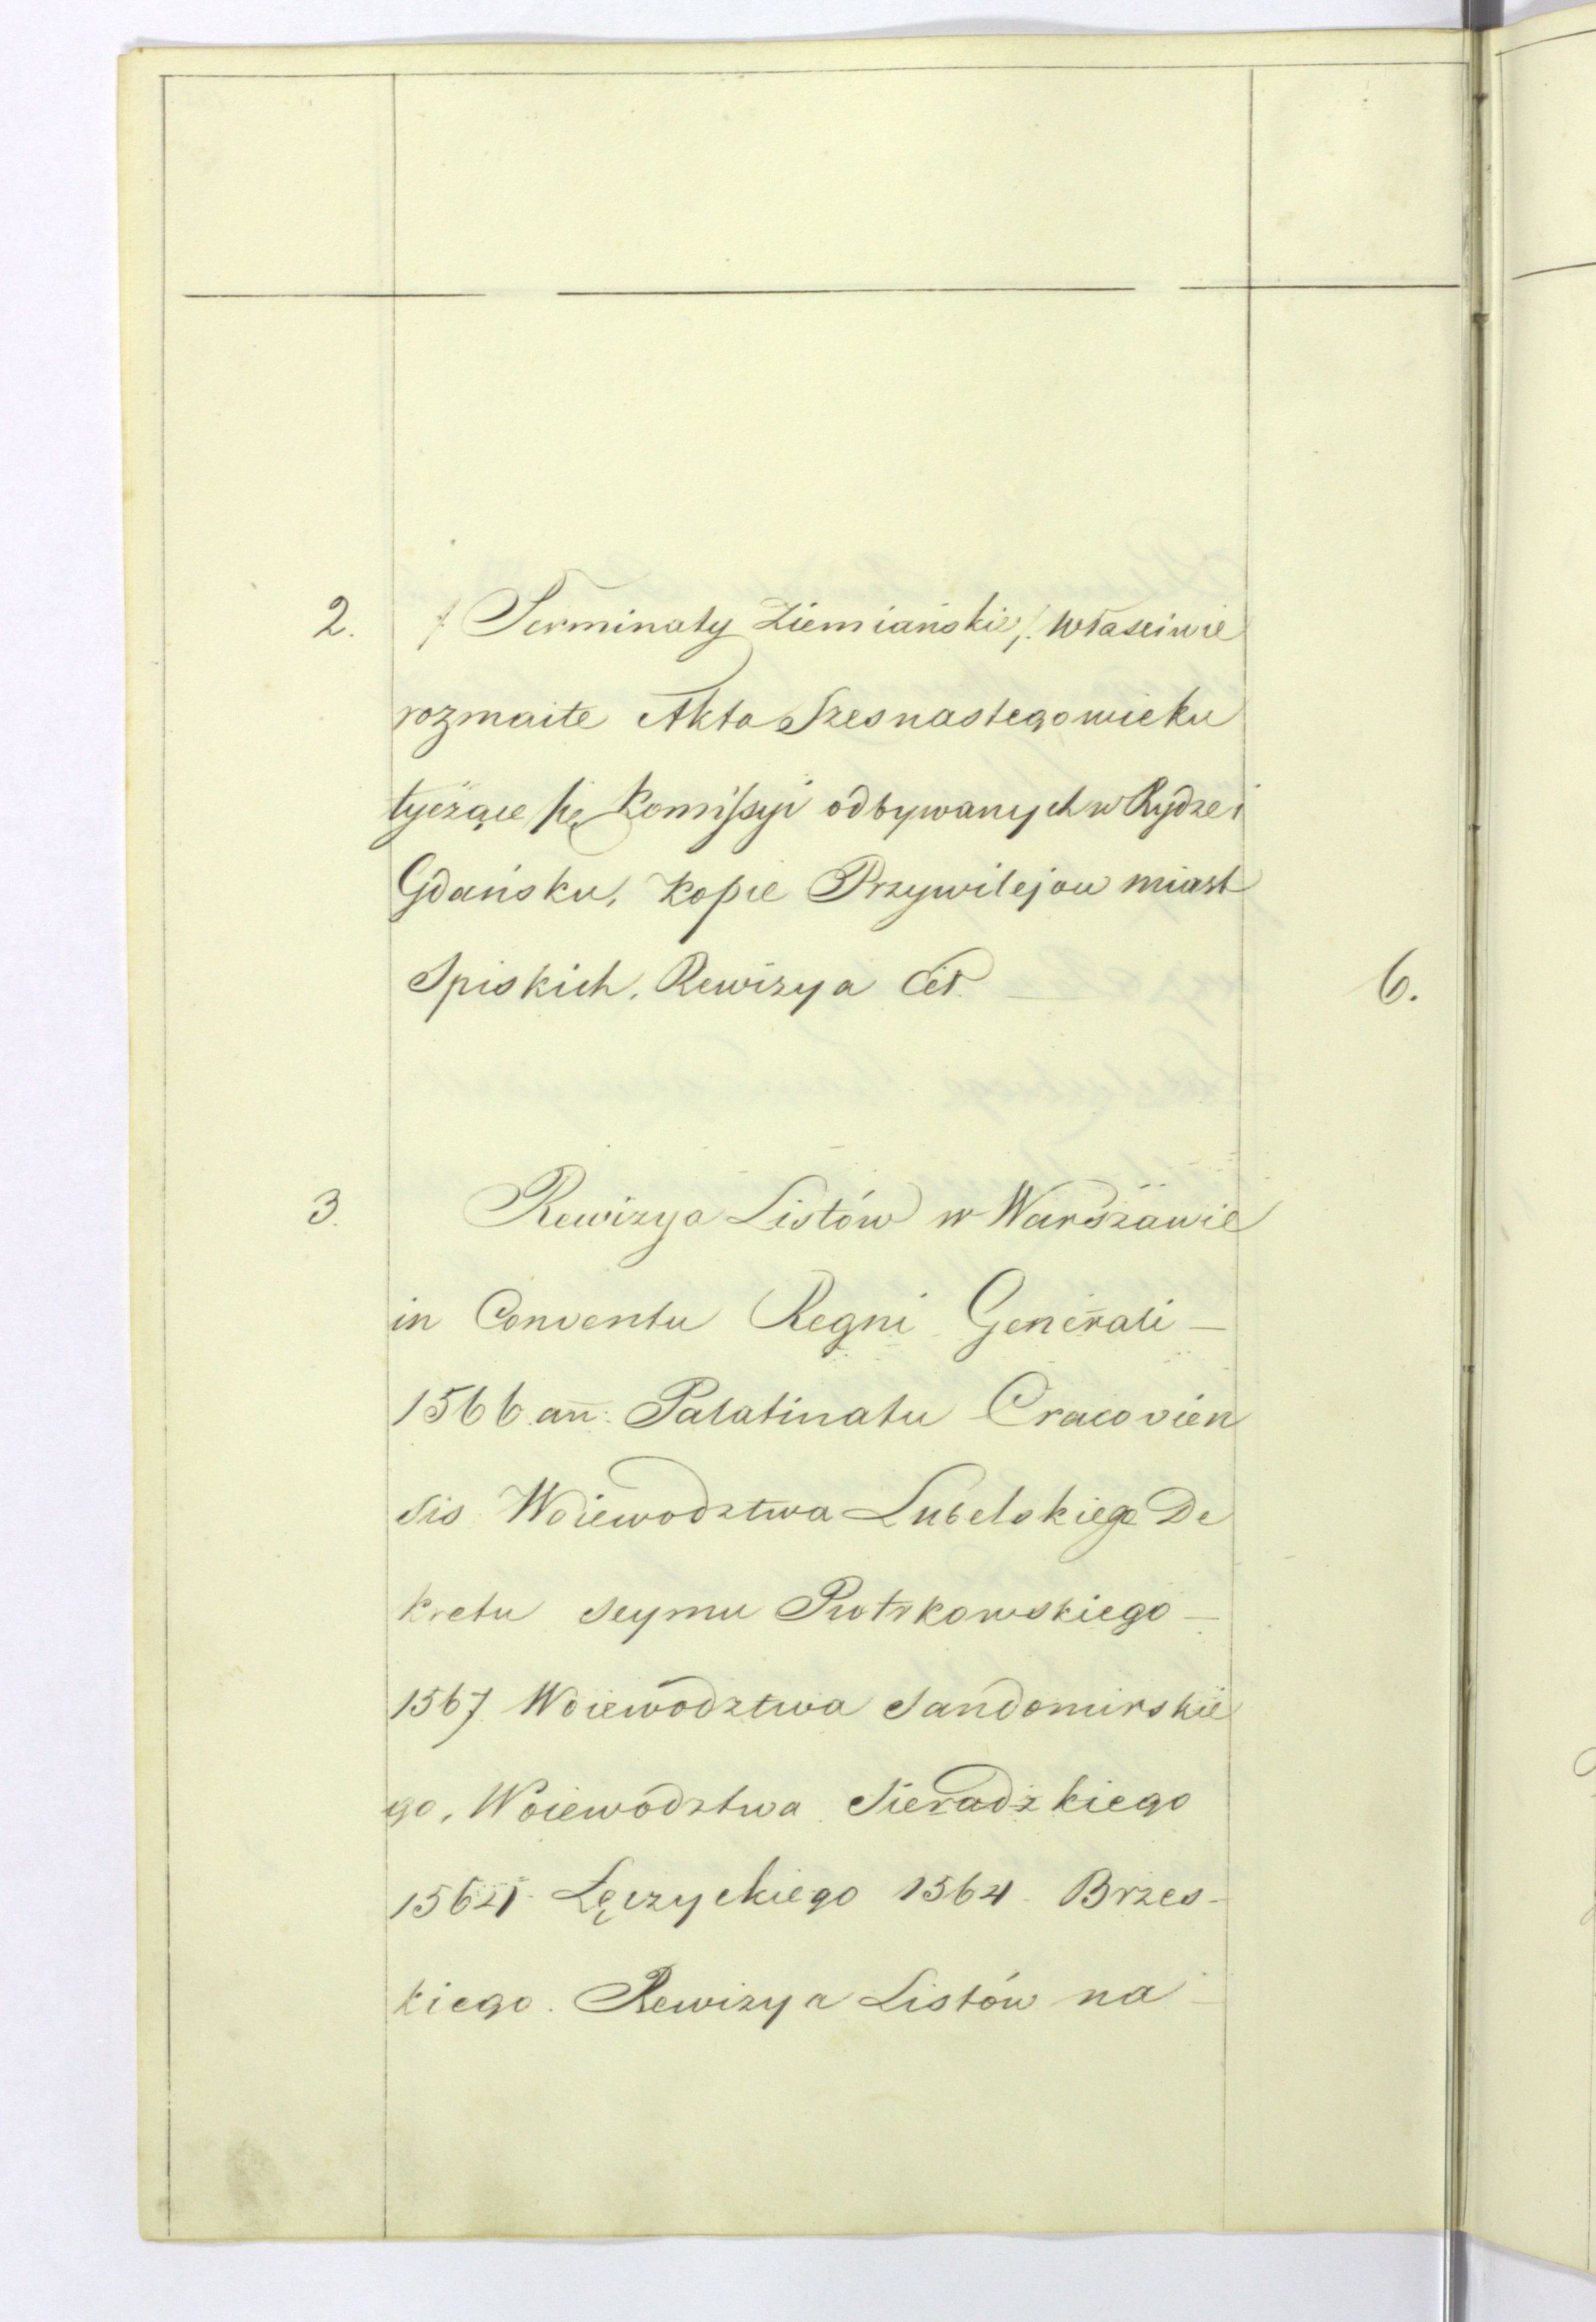 2. /. Terminaty Ziemiańskie /. właściwie
rozmaite Akta Szesnastego wieku
tyczące się Komissyi odbywanych w Rydze i
Gdańsku, Kopie Przywilejow miast
Spiskich, Rewizya &c. — 6.
3. Rewizya Listów w Warszawie
in Conventu Regni Generali —
1566 an̄: Palatinatu Cracovien
sis Woiewodztwa Lubelskiego De
kretu seymu Piotrkowskiego —
1567 Woiewództwa Sandomirskie
go, Woiewództwa Sieradzkiego
1564 Łęczyckiego 1564 Brzes-
kiego. Rewizya Listów na —